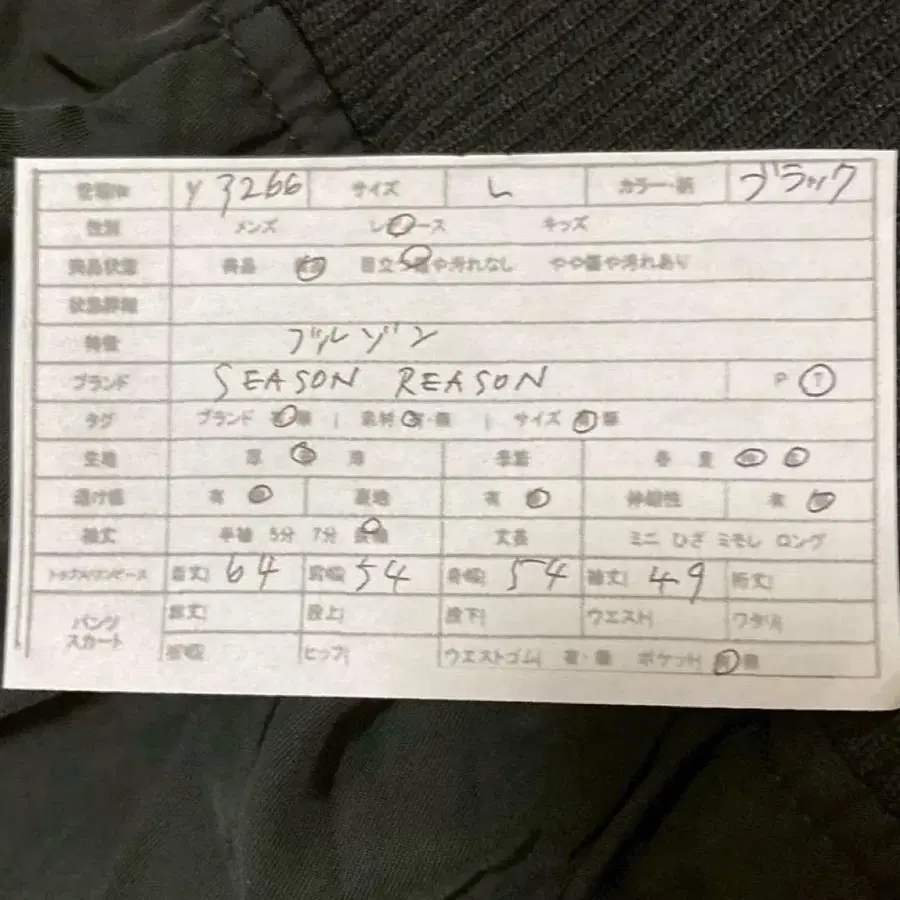 y3266 サイズ L カラー・柄 ブラック
性別 メンズ レ ース キッズ
商品状態 美品 目立 傷や汚れなし やや傷や汚れあり
状態詳細
特徴 ブルゾン
ブランド SEASON REASON P T
タグ ブランド 無 | 素材 有・無 | サイズ 無
生地 厚 薄 季節 春 夏
透け感 有 裏地 有 伸縮性 有
袖丈 半袖 5分 7分 丈長 ミニ ひざ ミモレ ロング
トップス/ワンピース 着丈 64 肩幅 54 身幅 54 袖丈 49 裄丈
パンツ スカート 総丈 股上 股下 ウエスト ワタリ
裾幅 ヒップ ウエストゴム 有・無 ポケット 無